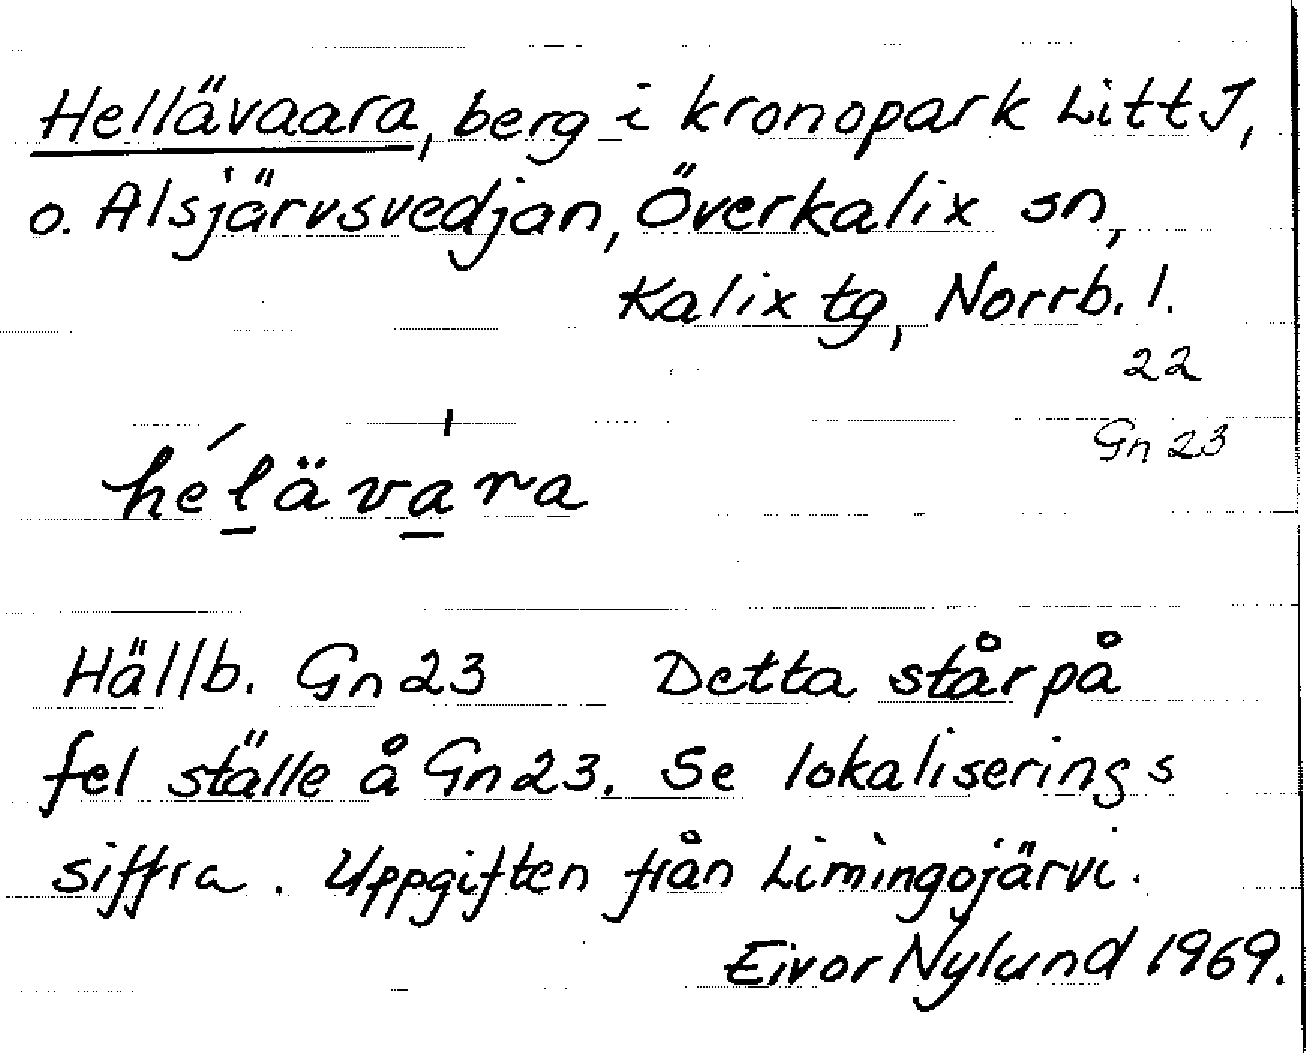 Hellävaara, berg i kronopark Litt J,
o. Alsjärvsvedjan, Överkalix sn,
Kalix tg, Norrb. l.
22
Gn 23
hélävàra
Hällb. Gn 23 Detta står på
fel ställe å Gn 23. Se lokaliserings
siffra. Uppgiften från Limingojärvi.
Eivor Nylund 1969.